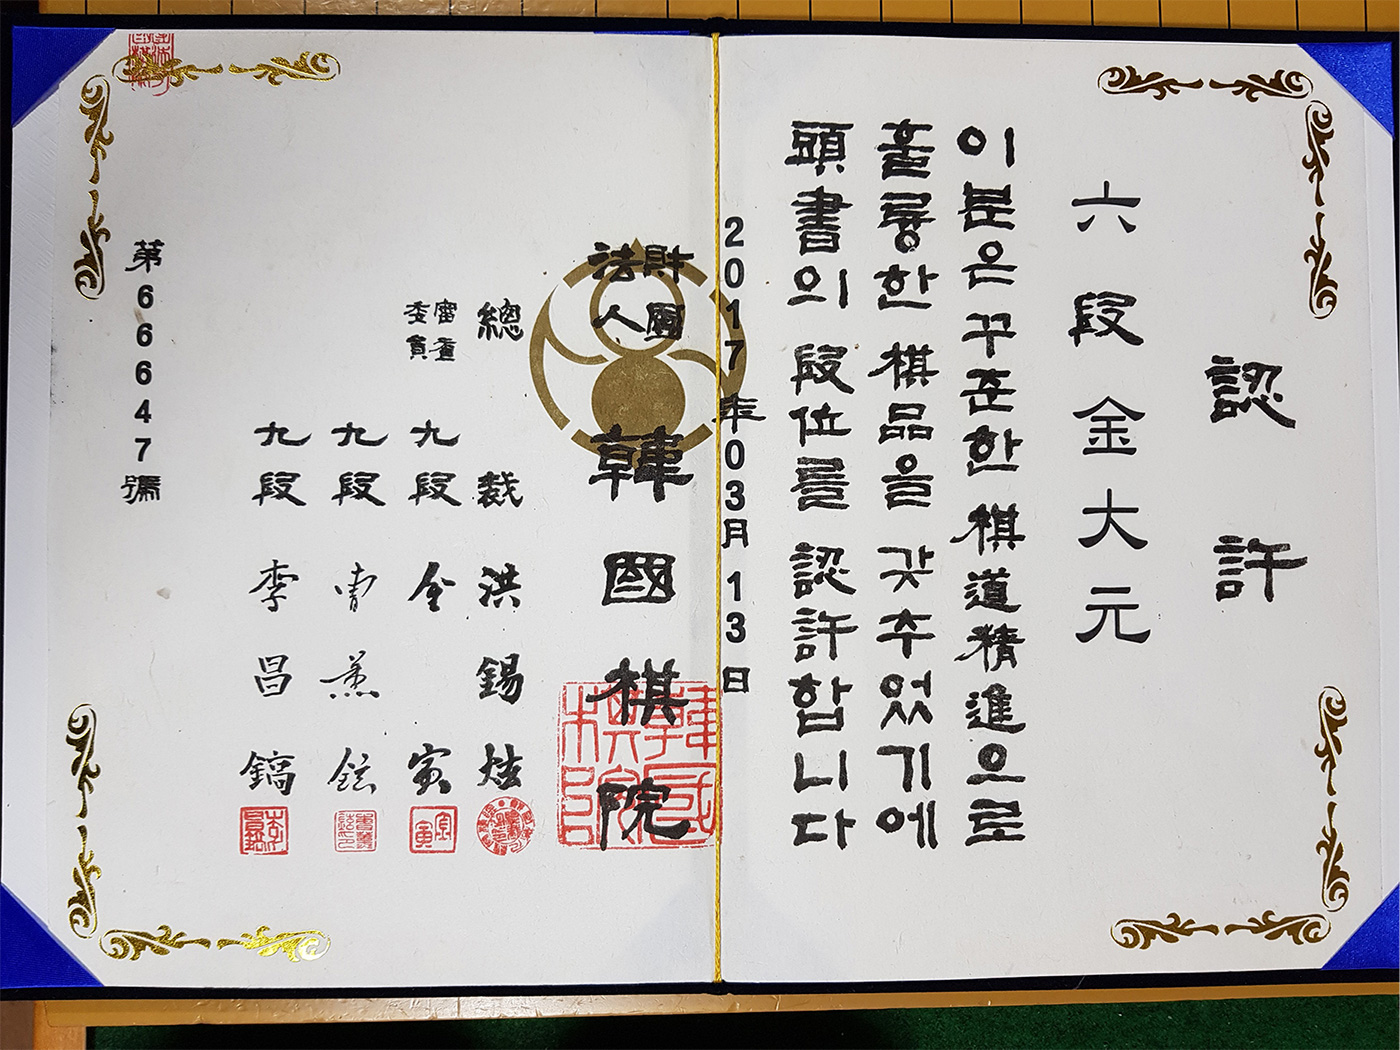 認許
六段 金大元
이분은 꾸준한 棋道精進으로
훌륭한 棋品을 갖추었기에
頭書의 段位를 認許합니다
2017年03月13日
財團
法人
韓國棋院
總裁 洪錫炫
審査
委員
九段 金寅
九段 曺薰鉉
九段 李昌鎬
第66647號
韓國棋院